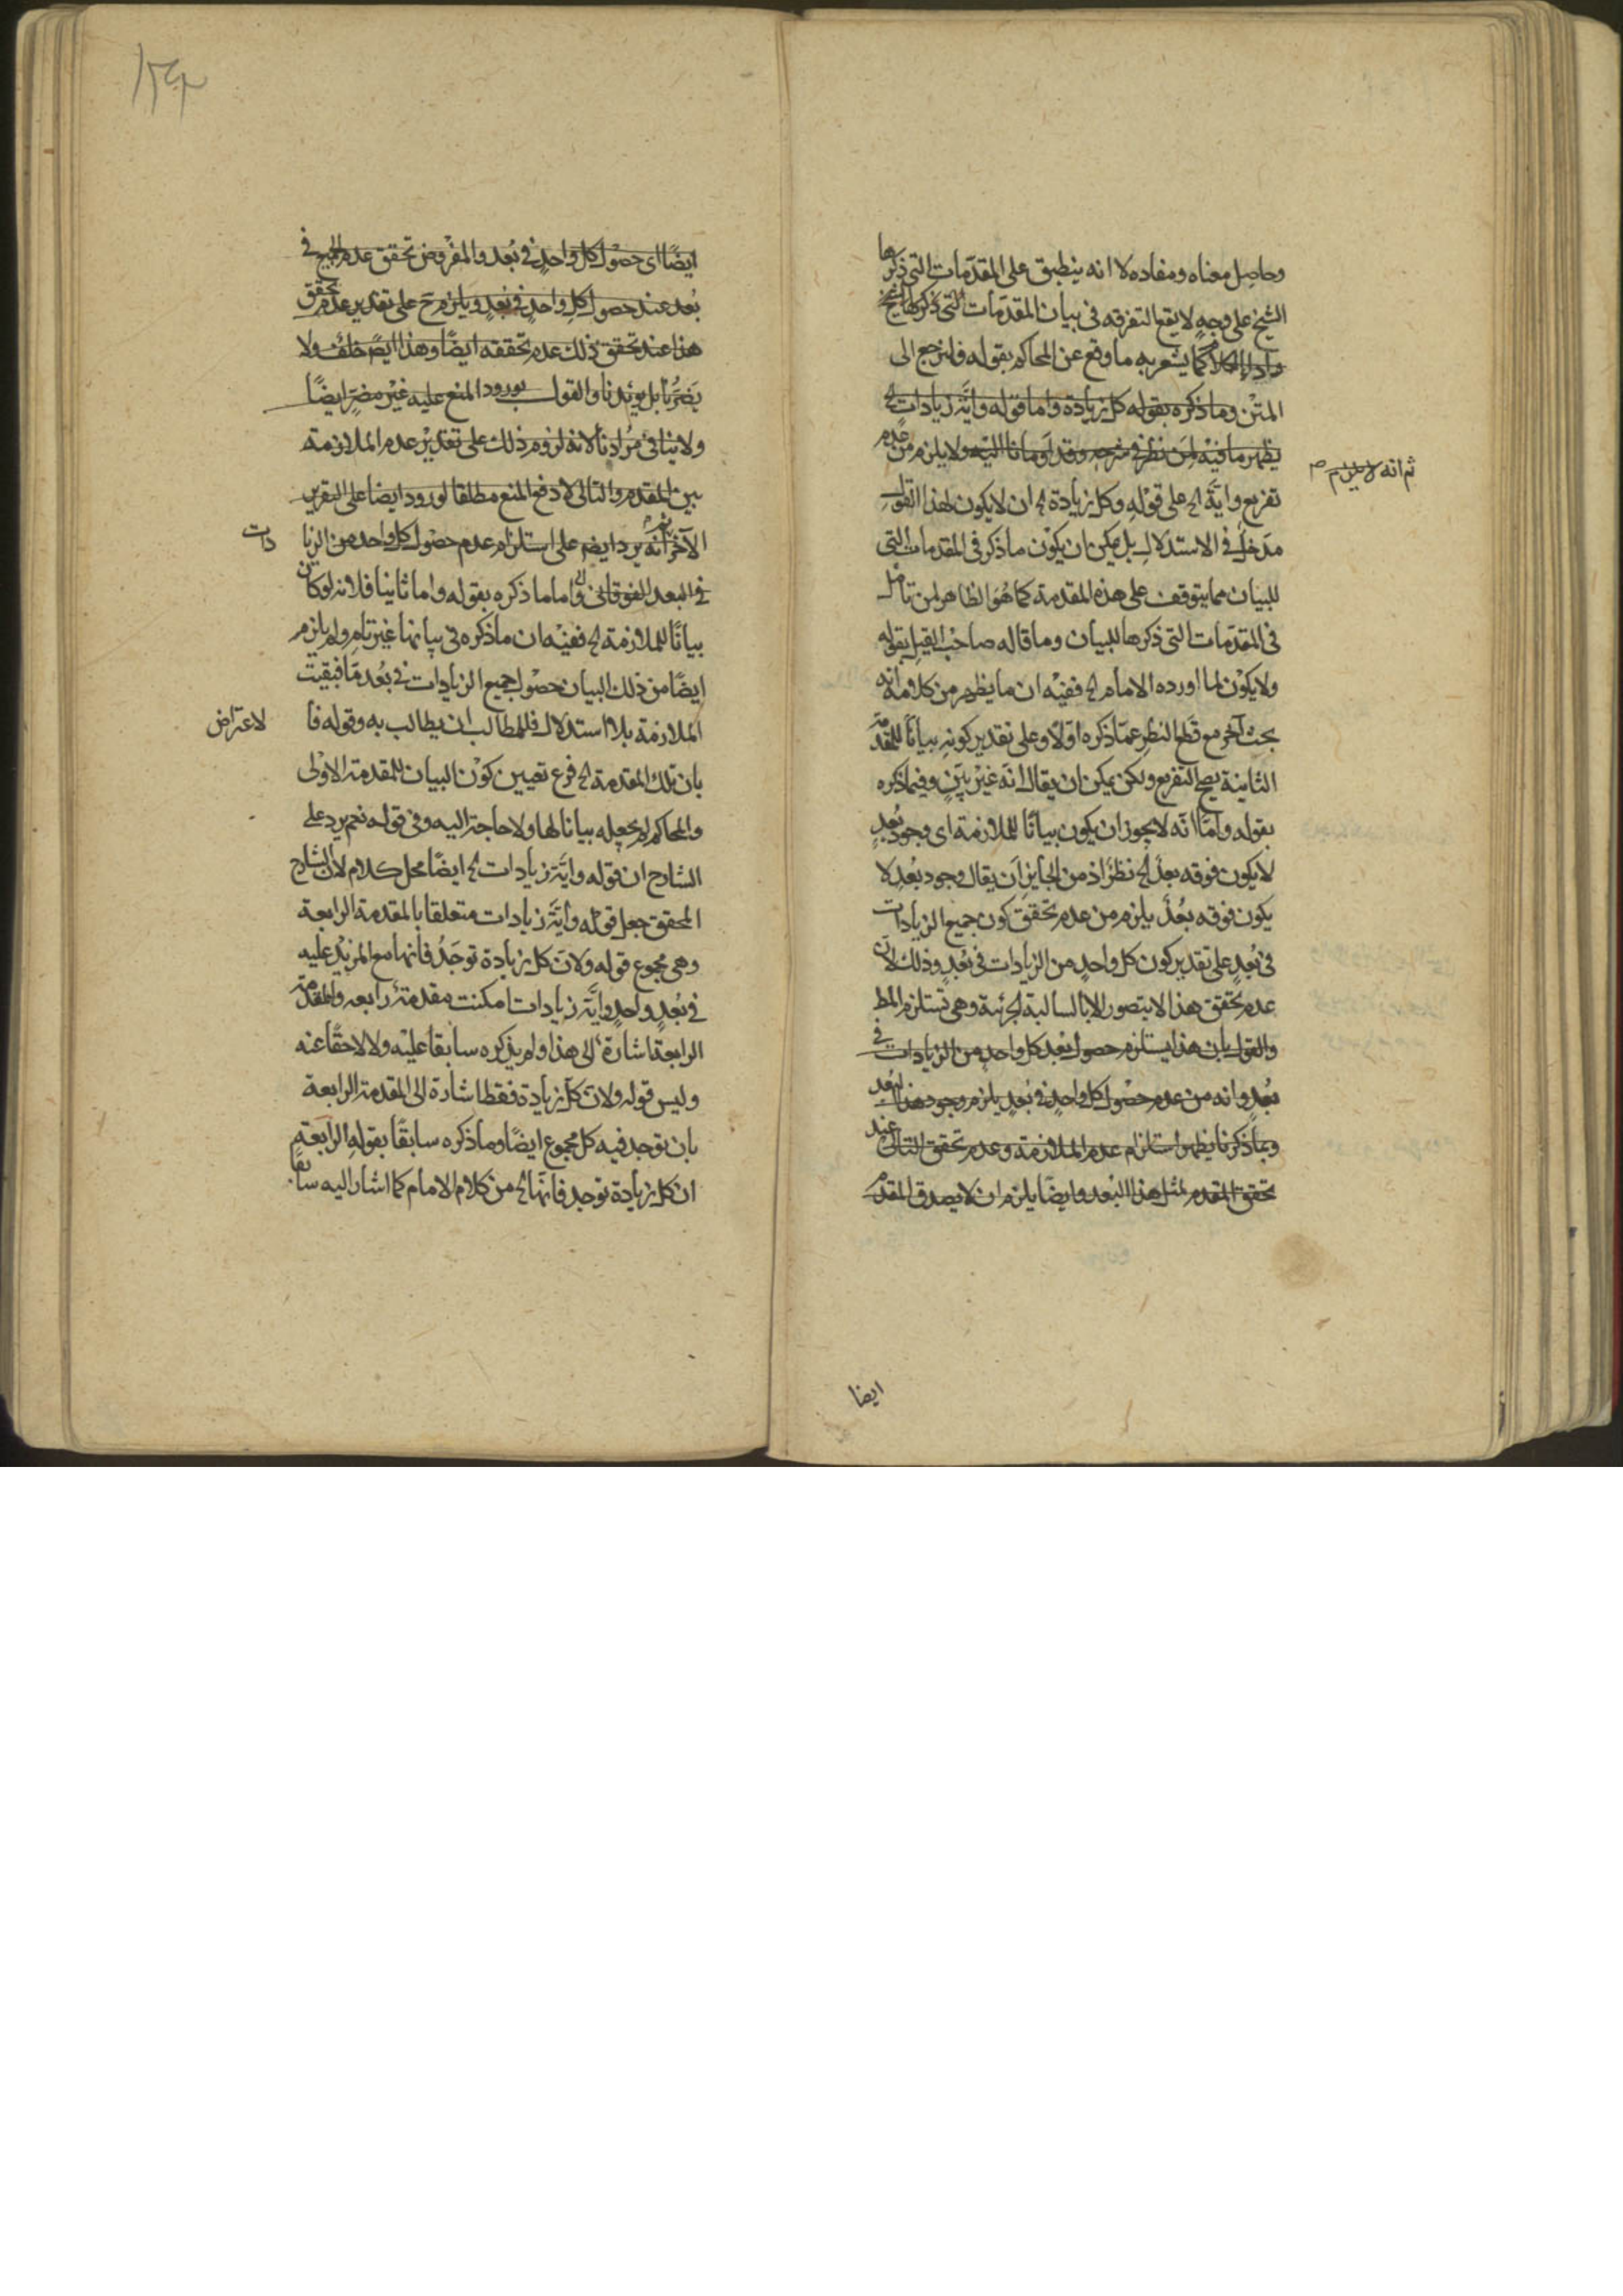 وحاصل معناه ومفاده لا انه ينطبق على المقدمات التى ذكرها
الشيخ على وجه لا يقع التفرقه فى بيان المقدمات التى ذكرها الشيخ
واداء الكلام كما يشعر به ما وقع عن المحاكم بقوله فلنرجع الى
المتن وما ذكره بقوله كل زيادة واما قوله واية زيادات الخ
يظهر ما فيه لمن نظر فى شرحه وقد اومانا اليه ولا يلزم من عدم
ثم انه لا يلزم م
تفريع واية الخ على قوله وكل زيادة الخ ان لا يكون لهذا القول
مدخل فى الاستدلال بل يمكن ان يكون ما ذكر فى المقدمات التى
للبيان مما يتوقف على هذه المقدمة كما هو الظاهر لمن تامل
فى المقدمات التى ذكرها للبيان وما قاله صاحب القيل بقوله
ولا يكون لما اورده الامام الخ ففيه ان ما يظهر من كلامه انه
بحث آخر مع قطع النظر عما ذكره اولا وعلى تقدير كونه بيانا للمقدمة
الثانية يصح التفريع ولكن يمكن ان يقال انه غير بين وفيما ذكره
بقوله واما انه لا يجوز ان يكون بيانا للملازمة اى وجود بعد
لا يكون فوقه بعد الخ نظر اذ من الجايز ان يقال وجود بعد لا
يكون فوقه بعد يلزم من عدم تحقق كون جميع الزيادات
فى بعد على تقدير كون كل واحد من الزيادات فى بعد وذلك لان
عدم تحقق هذا لا يتصور الا بالسالبة الجزئية وهى تستلزم المط
والقول بان هذا يستلزم حصول بعد كل واحد من الزيادات فى
بعد وانه من عدم حصول كل واحد فى بعد يلزم وجود هذا البعد
وبما ذكرنا يظهر استلزام عدم الملازمة وعدم تحقق التالى عند
تحقق المقدم لمثل هذا البعد وايضا يلزم ان لا يصدق المقدم
ايضا
ايضا اى حصول كل واحد فى بعد والمفروض تحقق عدم الجميع فى
بعد عند حصول كل واحد فى بعد ويلزم ح على تقدير عدم تحقق
هذا عند تحقق ذلك عدم تحققه ايضا وهذا ايضا خلف ولا
يضرنا بل يؤيدنا والقول بورود المنع عليه غير مضر ايضا
ولا ينافى مرادنا لانه لزوم ذلك على تقدير عدم الملازمة
بين المقدم والتالى لا دفع المنع مطلقا لورود ايضا على التقرير
الآخر ثم انه يرد ايضا على استلزام عدم حصول كل واحد من الزيا
دات
فى البعد الفوقانى واما ما ذكره بقوله واما ثانيا فلانه لو كان
بيانا للملازمة الخ ففيه ان ما ذكره فى بيانها غير تام ولم يلزم
ايضا من ذلك البيان حصول جميع الزيادات فى بعد ما فبقيت
الملازمة بلا استدلال فللمطالب ان يطالب به وقوله فا
لاعتراض
بان تلك المقدمة الخ فرع تعيين كون البيان للمقدمة الاولى
والمحاكم لم يجعله بيانا لها ولا حاجة اليه وفى قوله نعم يرد على
الشارح ان قوله واية زيادات الخ ايضا محل كلام لان الشارح
المحقق جعل قوله واية زيادات متعلقا بالمقدمة الرابعة
وهى مجموع قوله ولان كل زيادة توجد فانها مع المزيد عليه
فى بعد واحد واية زيادات امكنت مقدمة رابعه والمقدمة
الرابعة اشارة الى هذا ولم يذكره سابقا عليه ولا لاحقا عنه
وليس قوله ولان كل زيادة فقط اشارة الى المقدمة الرابعة
بان توجد فيه كل مجموع ايضا وما ذكره سابقا بقوله الرابعة
ان كل زيادة توجد فانها الخ من كلام الامام كما اشار اليه سابقا